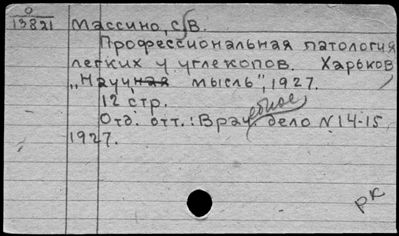 0
13821 Массино, С.В.
Профессиональная патология
легких у углекопов. Харьков
„Научная мысль", 1927.
12 стр.
Отд. отт.: Врачебное дело N 14-15,
1927.
рк